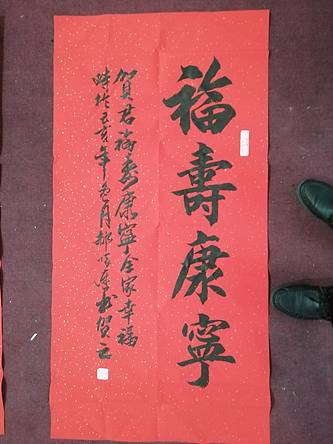 福壽康寧
賀君福壽康寧全家幸福
時於己亥年 月 書賀之